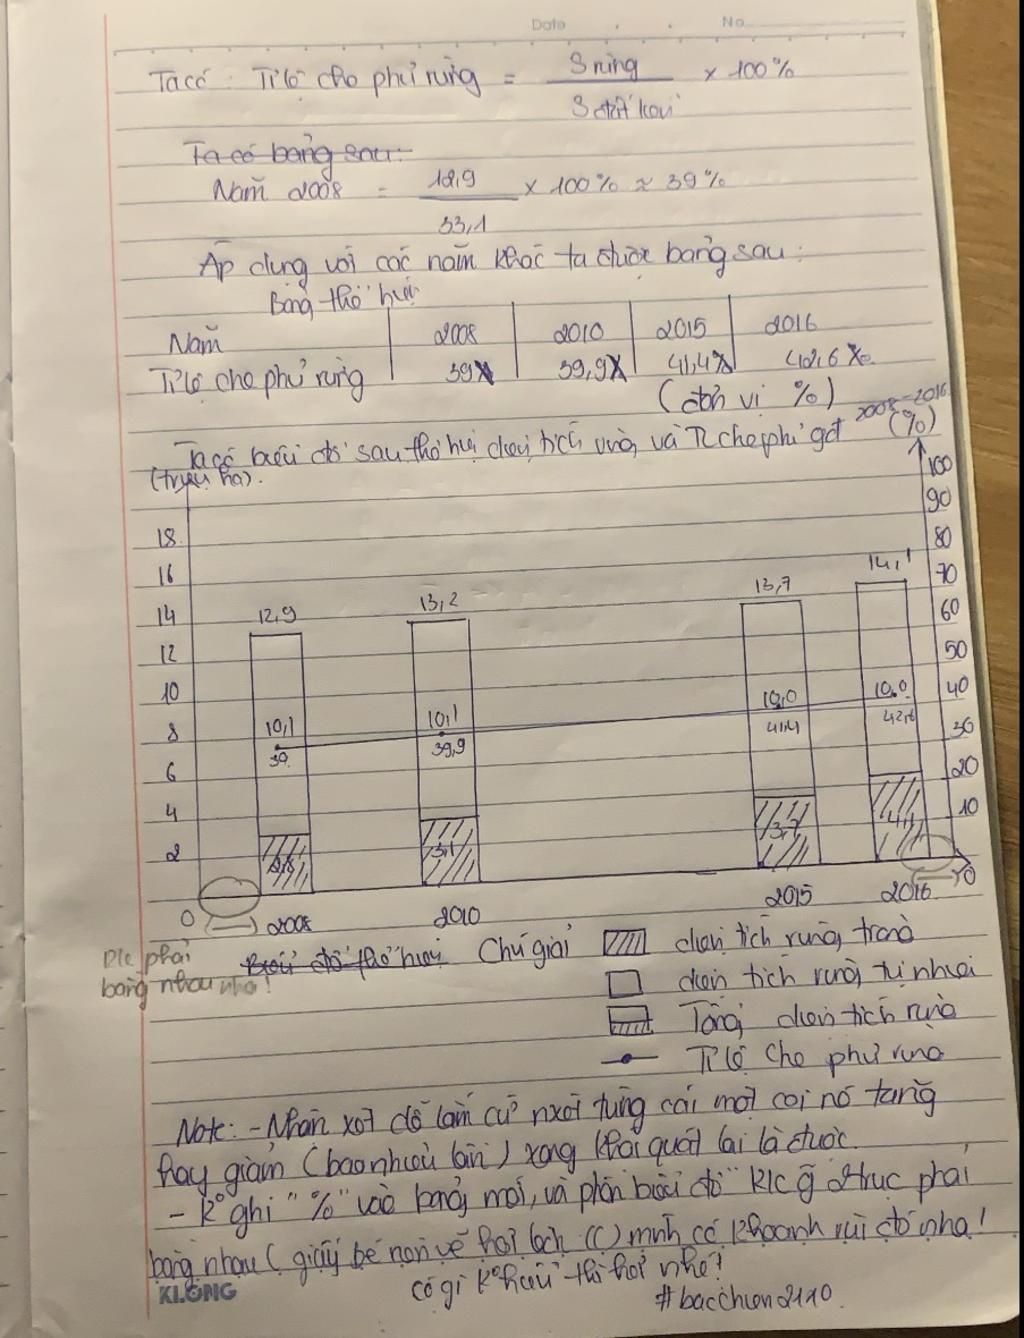 Date No
Ta có : Tỉ lệ che phủ rừng = S rừng / S đất nổi × 100%
Ta có bảng sau:
Năm 2008 = 12,9 / 33,1 × 100% ≈ 39%
Áp dụng với các năm khác ta được bảng sau:
Bảng thể hiện
Năm 2008 2010 2015 2016
Tỉ lệ che phủ rừng 39 39,9 41,4 42,6
(đơn vị %)
Ta có biểu đồ sau thể hiện diện tích rừng và TL che phủ gđ 2008-2016
(triệu ha). (%)
100
90
18 80
16 70
14 60
12 50
10 40
8 30
6 20
4 10
2
0 0
12,9 13,2 13,7 14,1
10,1 10,1 10,0 10,0
39 39,9 41,4 42,6
2,8 3,1 3,7 4,1
2008 2010 2015 2016
Đlc phải
bằng nhau nha!
Biểu đồ thể hiện Chú giải diện tích rừng trồng
diện tích rừng tự nhiên
Tổng diện tích rừng
Tỉ lệ che phủ rừng
Note: - Nhận xét dễ lắm cứ nxét từng cái một coi nó tăng
hay giảm (bao nhiêu lần) xong khái quát lại là được.
- K° ghi "%" vào bảng mới, và phần biểu đồ k/c g 2 trục phải
bằng nhau (giấy bé nên vẽ hơi lệch :(() mình có khoanh rùi đó nha!
có gì k° hiểu thì hỏi nhé!
KLONG
#bacchien2110.